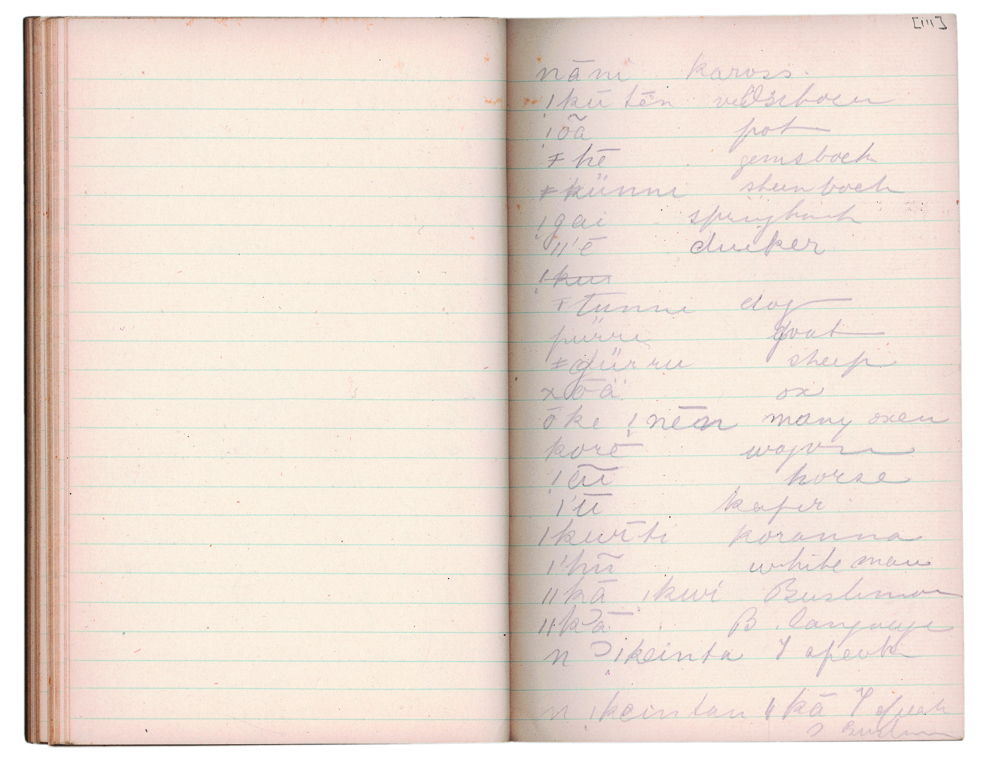 [111]
nāni kaross.
!kū tēn veldschoen
!õã pot
ǂ hē gemsbock
ǂ künni steinbock
!gai springbock
ǁ'ē duiker
!kui
ǂ tunni dog
pürri goat
ǂ gürru sheep
x ōä ox
ōke !nēn many oxen
korē wagon
horse
|'ū kafir
|kwīti koranna
|'hū white man
ǁkā !kwi Bushman
ǁkā B. language
n |keinta I speak
n |keintan ǁkā I speak
Bushman